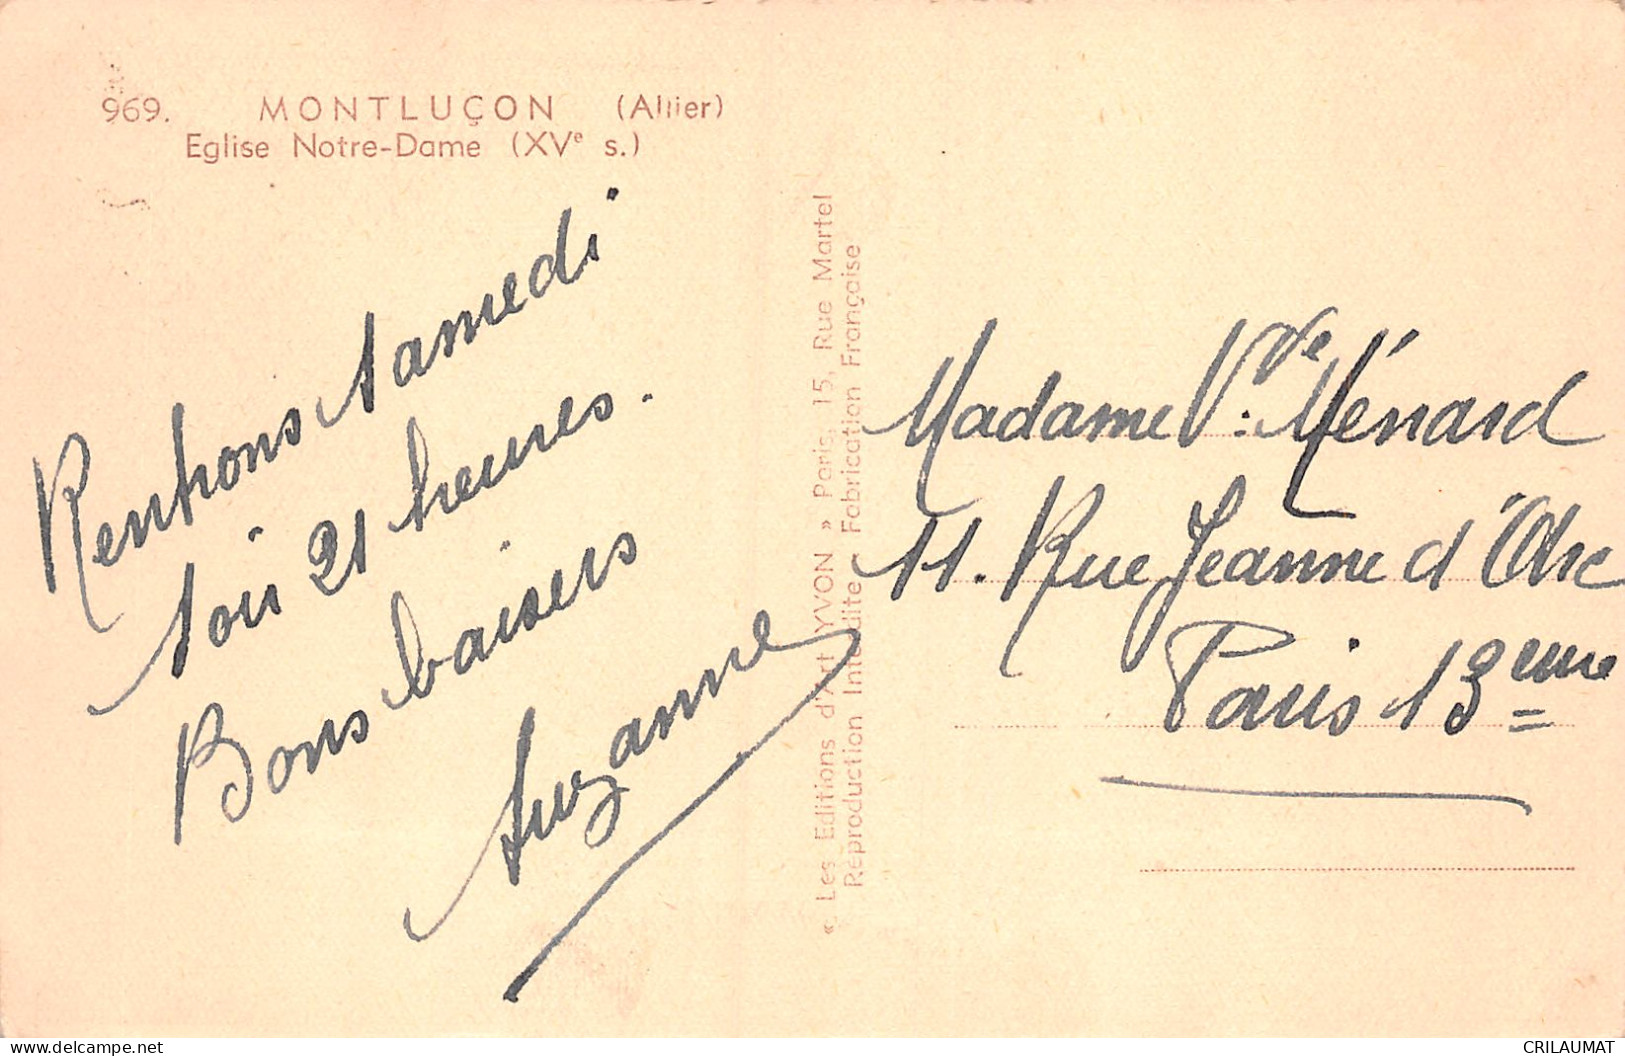 969. MONTLUÇON (Allier)
Eglise Notre-Dame (XVe s.)
Rentrons samedi
soir 21 heures.
Bons baisers
Suzanne
« Les Editions d'Art YVON » Paris, 15, Rue Martel
Reproduction Interdite - Fabrication Française
Madame Vve Ménard
11. Rue Jeanne d'Arc
Paris 13eme
www.delcampe.net
CRILAUMAT